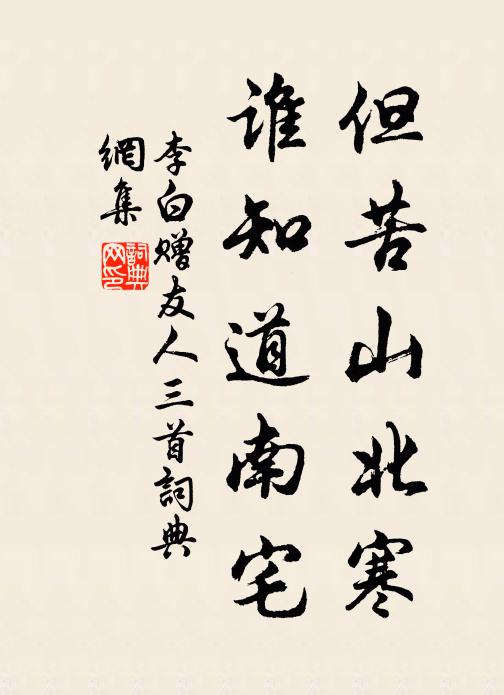 但苦山北寒
谁知道南宅
李白赠友人三首詞典
網集
詞典
网印